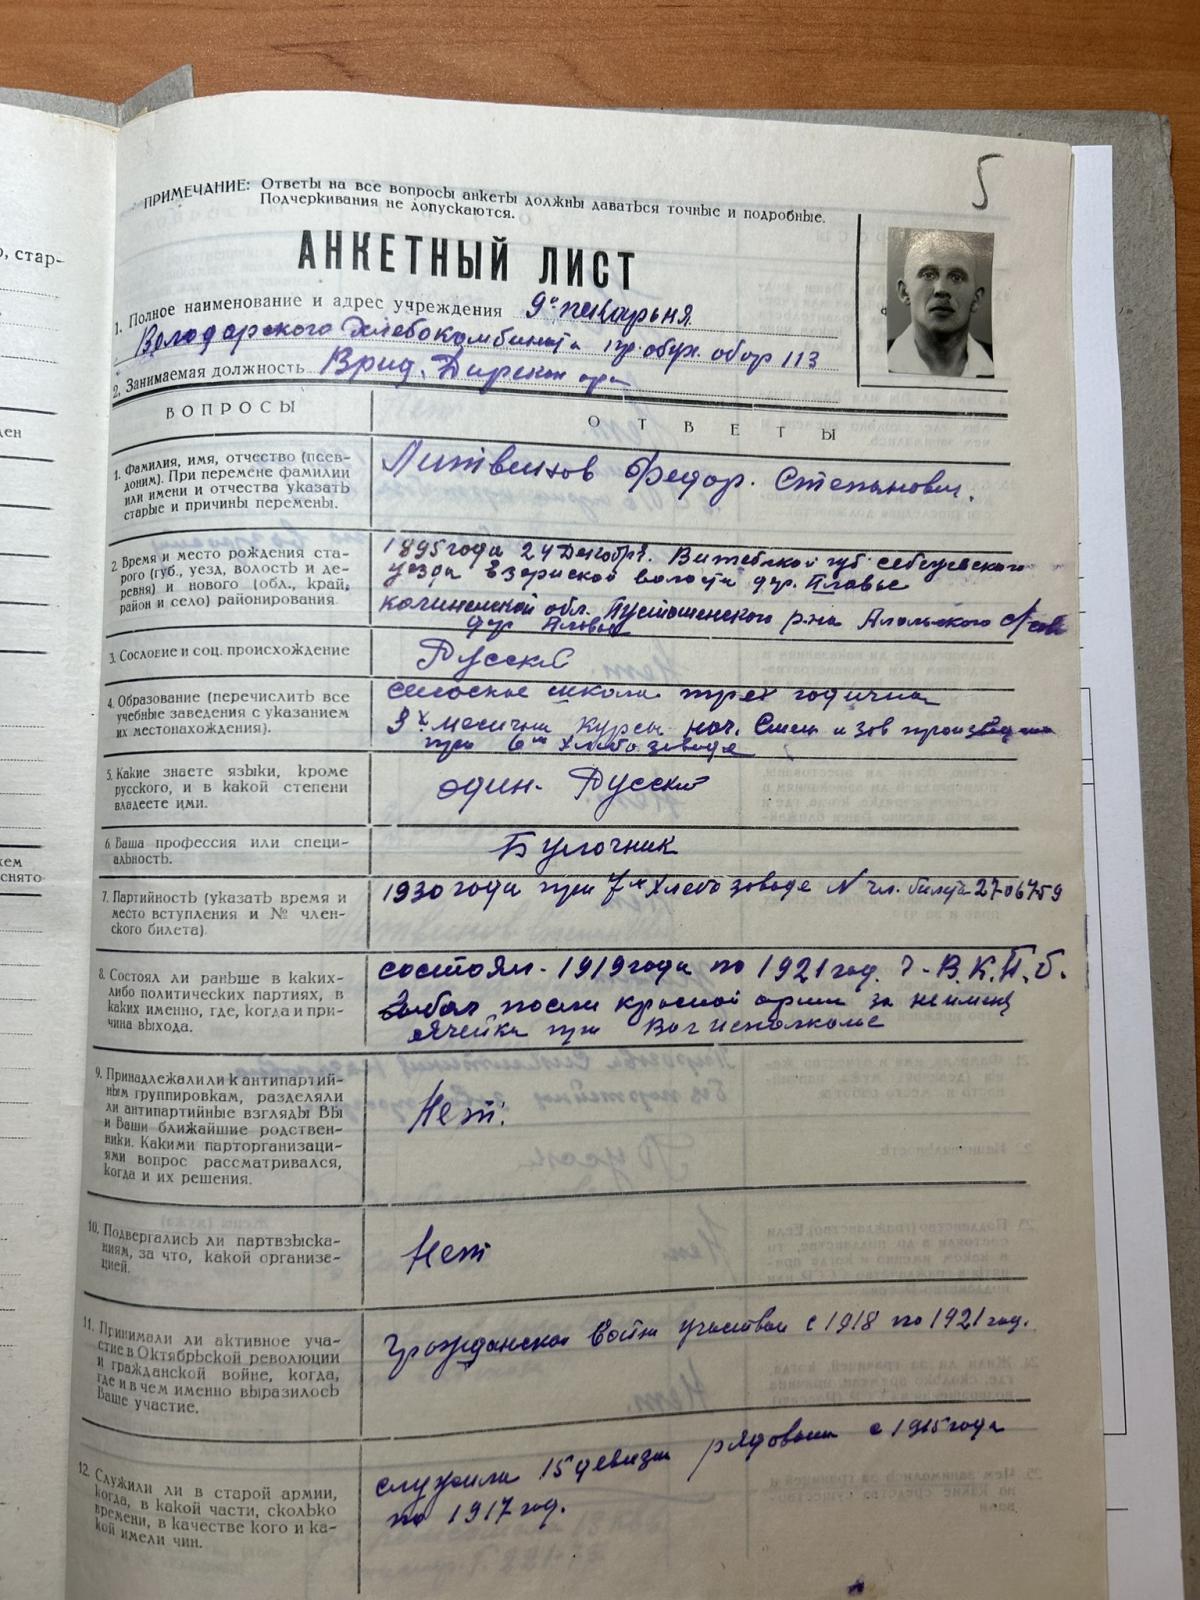 5
ПРИМЕЧАНИЕ: Ответы на все вопросы анкеты должны даваться точные и подробные.
Подчеркивания не допускаются.
АНКЕТНЫЙ ЛИСТ
1. Полное наименование и адрес учреждения 9ая пекарьня
Володарского Хлебокомбината пр. обух. обор 113
2. Занимаемая должность Врид. Директора
ВОПРОСЫ
ОТВЕТЫ
1. Фамилия, имя, отчество (псев-
доним). При перемене фамилии
или имени и отчества указать
старые и причины перемены.
Литвенков Федор. Степанович.
2. Время и место рождения ста-
рого (губ., уезд, волость и де-
ревня) и нового (обл., край,
район и село) районирования
1895 года 24 Декабря. Витебской губ. себежского
уезда волости дер. Плавье
калиненской обл. Пустошенского р-на Алольского с/сов
дер Плавье
3. Сословие и соц. происхождение
Русский
4. Образование (перечислить все
учебные заведения с указанием
их местонахождения).
сельская школа трех годична
3х месячны курсы нач. Смен и зав производ
при 6м Хлебозаводе
5. Какие знаете языки, кроме
русского, и в какой степени
владеете ими.
один. Русский
6. Ваша профессия или специ-
альность.
Булочник
7. Партийность (указать время и
место вступления и № член-
ского билета)
1930 года при 7м Хлебозаводе N чл. билета 2706759
8. Состоял ли раньше в каких-
либо политических партиях, в
каких именно, где, когда и при-
чина выхода.
состоял. 1919 года по 1921 год. В.К.П.б.
выбал посли красной арми за неимен
ячейка при Волисполкоме
9. Принадлежали ли к антипартий-
ным группировкам, разделяли
ли антипартийные взгляды Вы
и Ваши ближайшие родствен-
ники. Какими парторганизаци-
ями вопрос рассматривался,
когда и их решения.
Нет.
10. Подвергались ли партвзыска-
ниям, за что, какой организа-
цией.
Нет
11. Принимали ли активное уча-
стие в Октябрьской революции
и гражданской войне, когда,
где и в чем именно выразилось
Ваше участие.
Гражданской Войне участвовал с 1918 по 1921 год.
12. Служили ли в старой армии,
когда, в какой части, сколько
времени, в качестве кого и ка-
кой имели чин.
служил 15 девизии рядовым с 1915 года
по 1917 год.